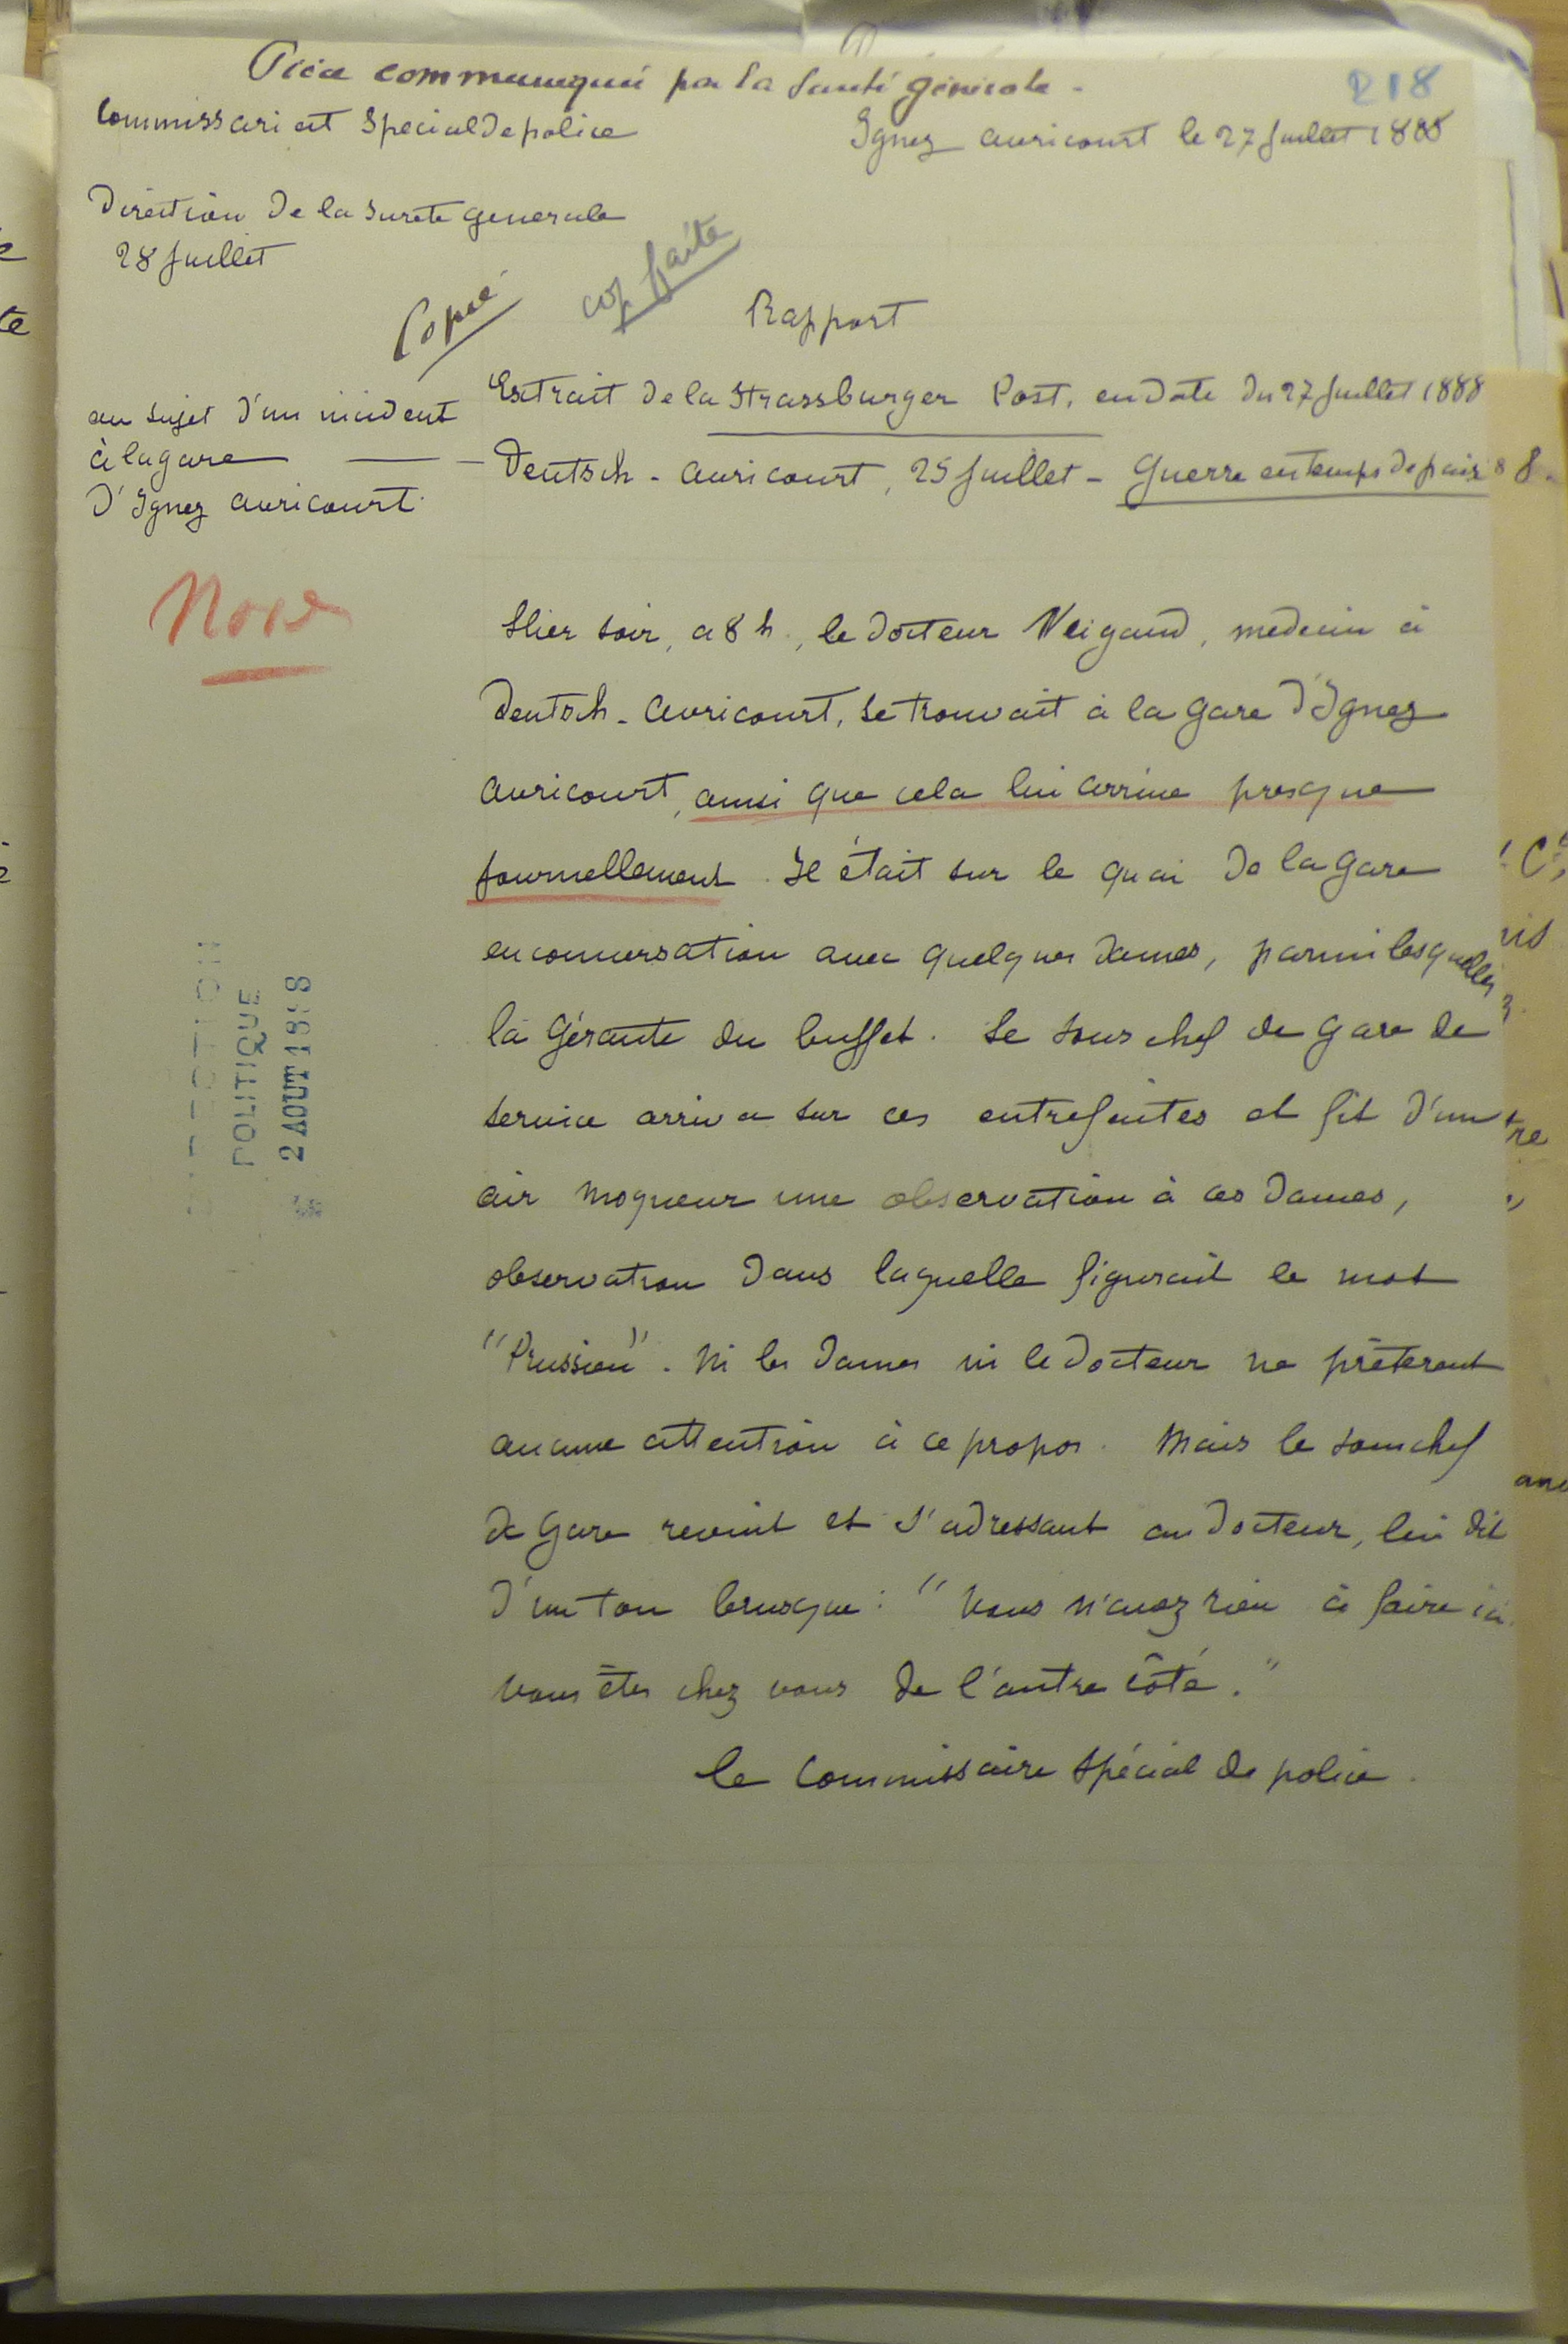 Pièce communiquée par la Sûreté générale -
218
Commissariat Special De police
Igney Avricourt le 27 Juillet 1888
Direction De la Sureté generale
28 Juillet
Copié
cop. faite
Rapport
au sujet d'un incident
à la gare
D'Igney Avricourt.
Extrait de la Strassburger Post, en Date du 27 Juillet 1888
Deutsch-Avricourt, 25 Juillet - Guerre en temps de paix
Hier soir, a 8 h., le Docteur Weigand, medecin à
Deutsch-Avricourt, se trouvait à la gare d'Igney
Avricourt, ainsi que cela lui arrive presque
journellement. Il était sur le quai de la gare
en conversation avec quelques dames, parmi lesquelles
la Gérante du buffet. Le sous chef de gare de
service arriva sur ces entrefaites et fit d'un
air moqueur une observation à ces dames,
observation dans laquelle figurait le mot
"Prussien". Ni les dames ni le Docteur ne prêterent
aucune attention à ce propos. Mais le sous chef
de gare revint et s'adressant au Docteur, lui dit
d'un ton brusque : "Vous n'avez rien à faire ici
vous êtes chez vous de l'autre côté."
le Commissaire Spécial de police.
POLITIQUE
2 AOUT 1888